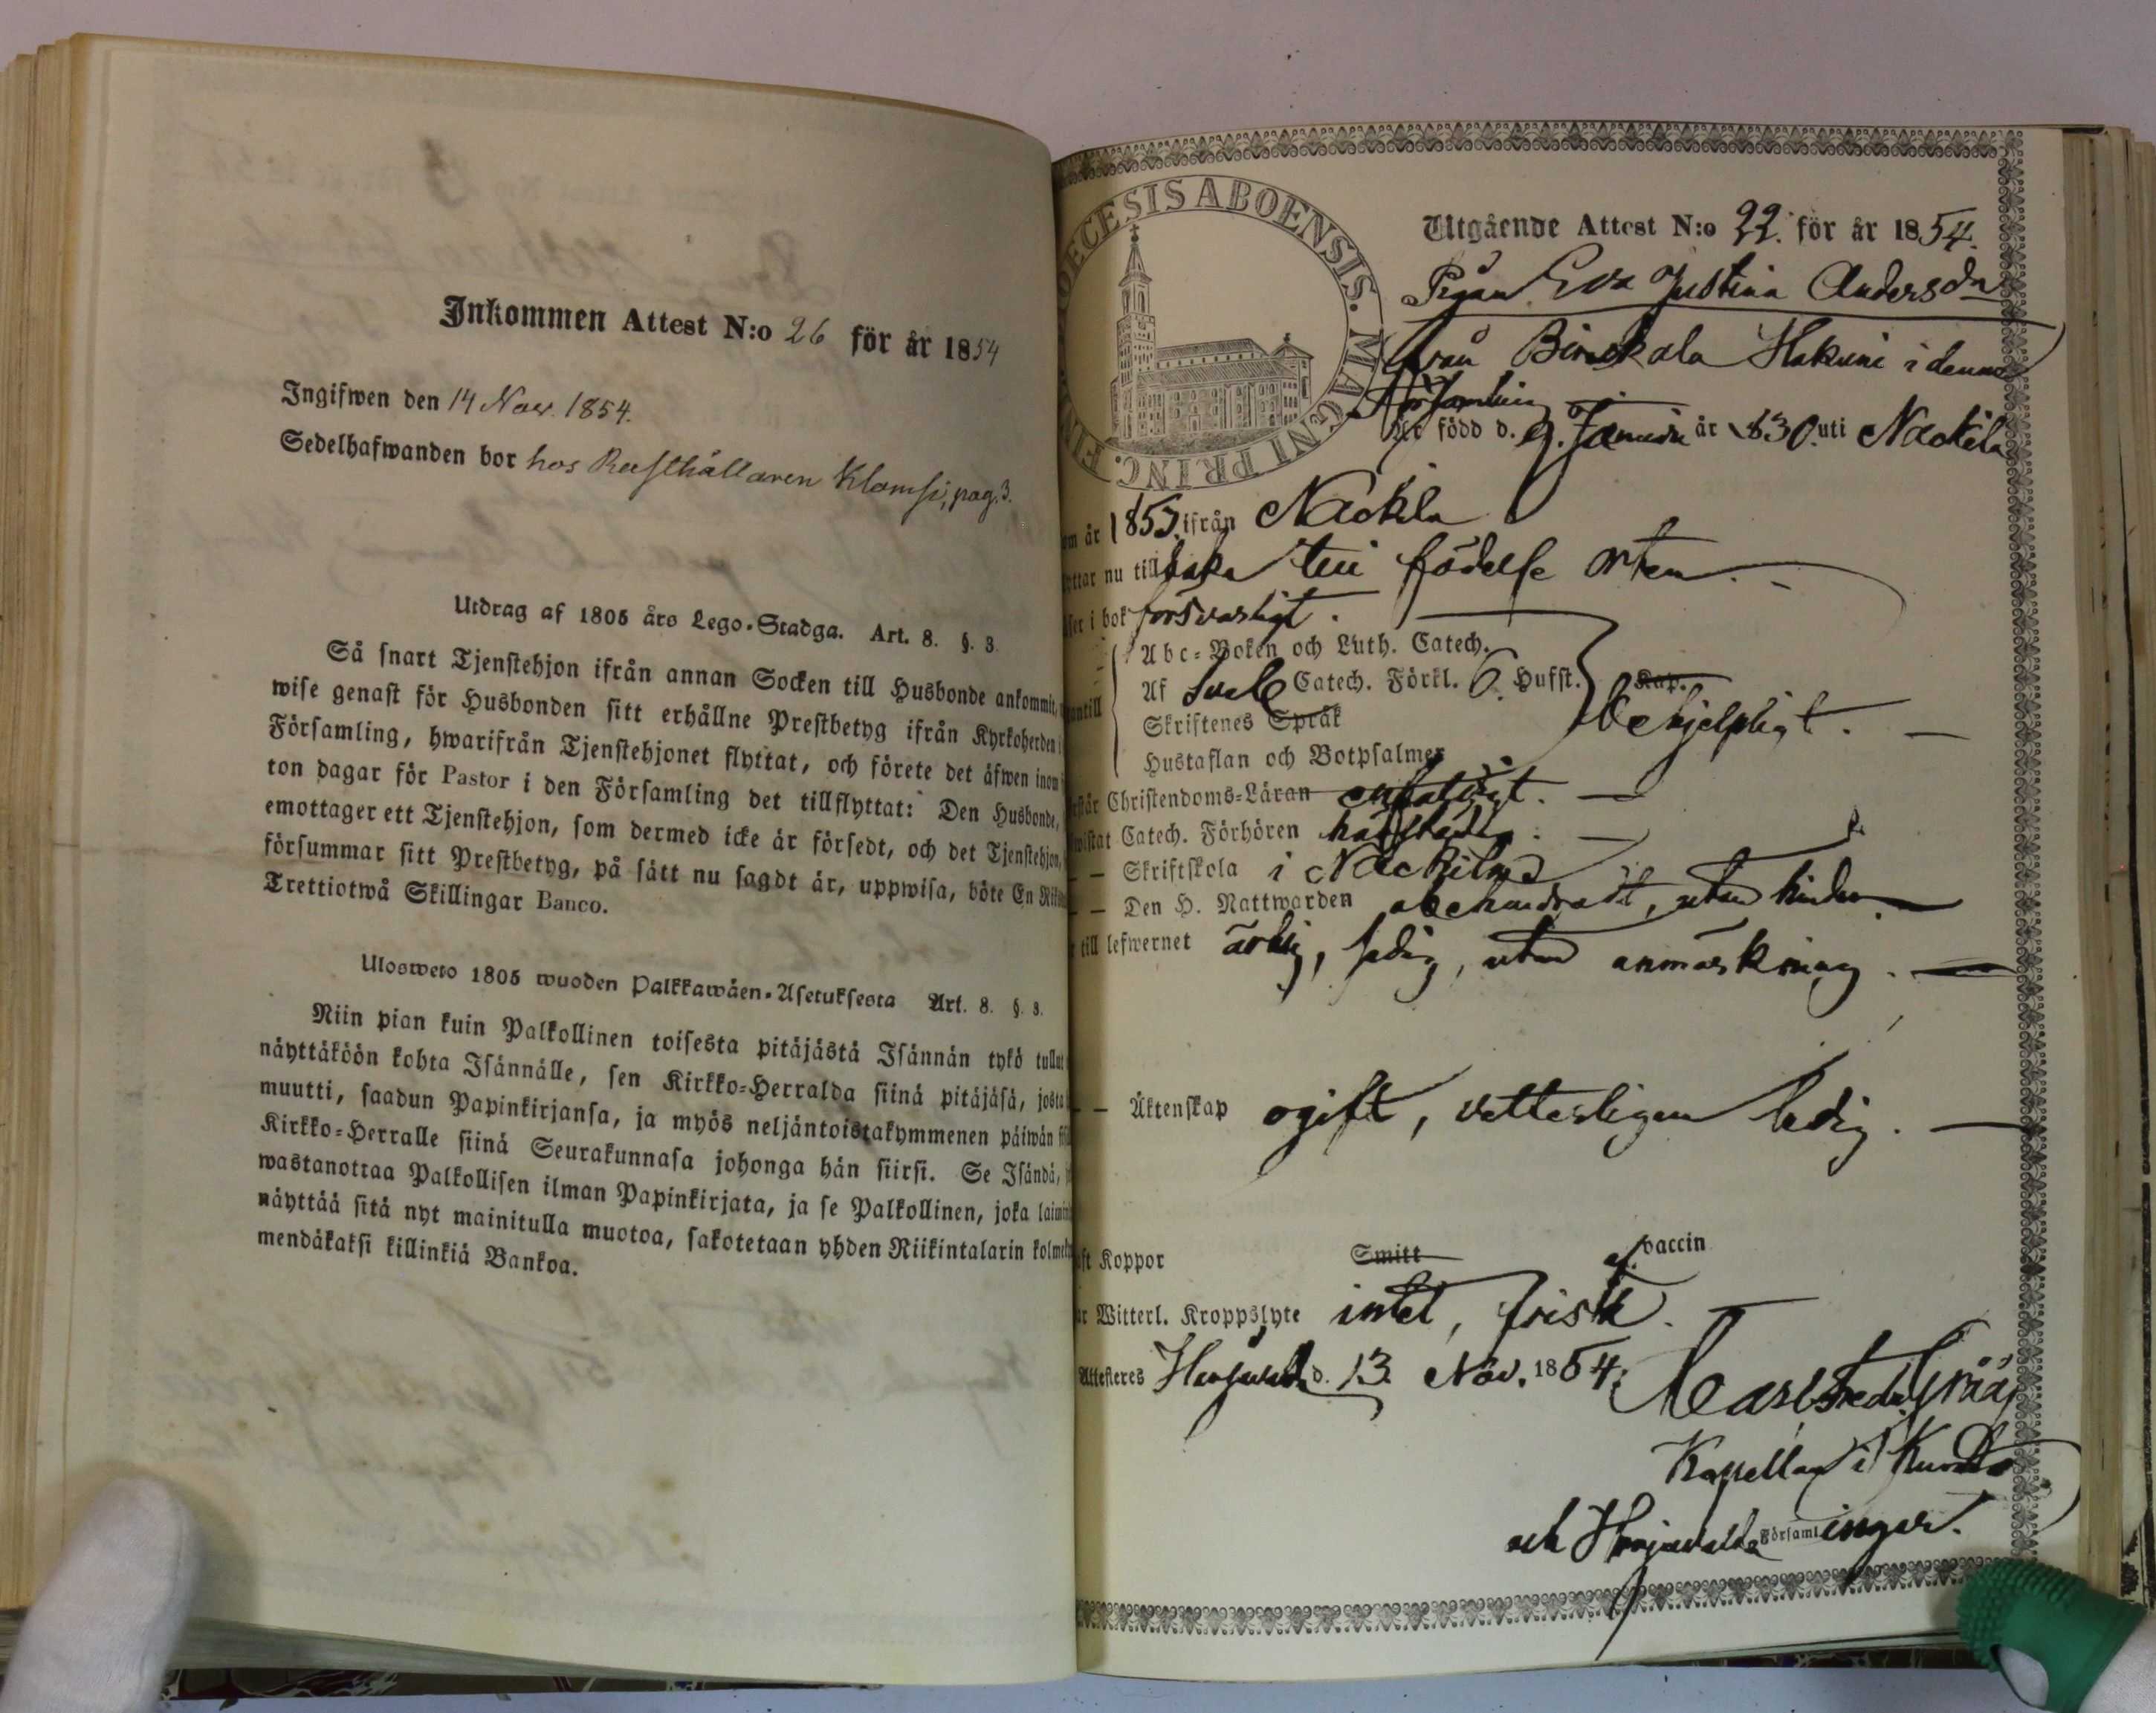 Inkommen Attest N:o 26 för år 1854
Ingifwen den 14 Nov. 1854.
Sedelhafwanden bor hos Rusthållaren Klomsi, pag. 3.
Utdrag af 1805 års Lego-Stadga. Art. 8. §. 3
Så snart Tjenstehjon ifrån annan Socken till Husbonde ankommit,
wise genast för Husbonden sitt erhållne Prestbetyg ifrån Kyrkoherden i
Församling, hwarifrån Tjenstehjonet flyttat, och förete det äfwen inom
ton dagar för Pastor i den Församling det tillflyttat: Den Husbonde,
emottager ett Tjenstehjon, som dermed icke är försedt, och det Tjenstehjon,
försummar sitt Prestbetyg, på sätt nu sagdt är, uppwisa, böte En Rik
Trettiotwå Skillingar Banco.
Ulosweto 1805 wuoden Palkkawäen-Asetuksesta Art. 8. §. 3.
Niin pian kuin Palkollinen toisesta pitäjästä Isännän tykö tullut
näyttäköön kohta Isännälle, sen Kirkko-Herralda siinä pitäjäsä, josta
muutti, saadun Papinkirjansa, ja myös neljäntoistakymmenen päiwän
Kirkko-Herralle siinä Seurakunnasa johonga hän siirsi. Se Isändä,
wastanottaa Palkollisen ilman Papinkirjata, ja se Palkollinen, joka laimin
näyttää sitä nyt mainitulla muotoa, sakotetaan yhden Riikintalarin kolme
mendäkaksi killinkiä Bankoa.
DIOECESIS ABOENSIS. MAGNI PRINC. FIN
Utgående Attest N:o 22. för år 1854.
Pigan Eva Justina Andersdr
från Hakuni i denna
Församling
Är född d. 9. Januari år 1830. uti Nackila
om år 1853 ifrån Nackila
yttar nu tillbaka till födelse orten.
ser i bok försvarligt.
Abc-Boken och Luth. Catech.
Af Sveb Catech. Förkl. 6. Hufst. Kap.
antill Skriftenes Språk behjelpligt.
Hustaflan och Botpsalmer
rstår Christendoms-Läran enfaldigt.
wistat Catech. Förhören
— Skriftskola i Nackila
— Den H. Nattwarden obehindradt, utan hinder
till lefwernet ärlig, sedig, utan anmärkning.
— Äktenskap ogift, vetterligen ledig.
ft Koppor Smitt af vaccin
ar Witterl. Kroppslyte intet, frisk.
Attesteres Harjavalda d. 13. Nov. 1854.
Carl Fredr.
Kapellan i
och Harjavalda Församlingar.